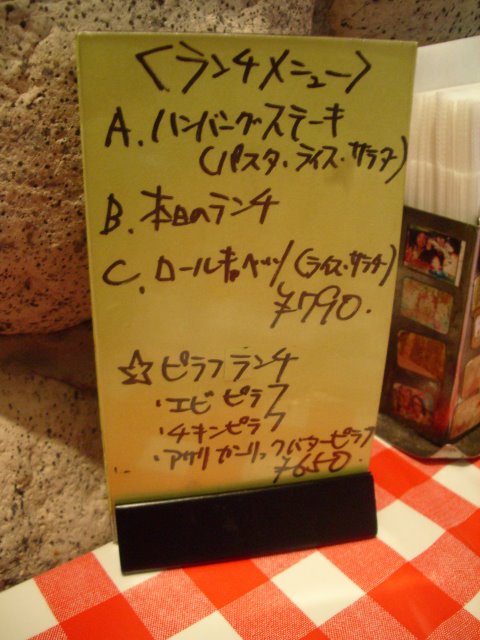 〈ランチメニュー〉
A.ハンバーグステーキ
(パスタ・ライス・サラダ)
B.本日のランチ
C.ロールキャベツ(ライス・サラダ)
¥790.
☆ピラフランチ
・エビピラフ
・チキンピラフ
・アサリガーリックバターピラフ
¥650.